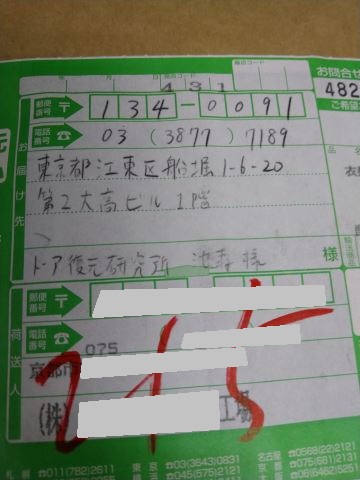 発店コード
着店コード
年 月 日
431
お問合せ
482
ご希望
郵便番号 〒 134-0091
電話番号 ☎ 03 (3877) 7189
お届け先
東京都江東区船堀1-6-20
第2大高ビル 1階
トーア復元研究所
様
荷送人
郵便番号 〒
電話番号 ☎
075
京都市
215
(株)
工場
札幌☎011(782)2611
東京☎03(3643)0831
横浜☎045(575)2121
名古屋☎0568(22)2121
京都☎075(681)2131
大阪☎06(6462)5261